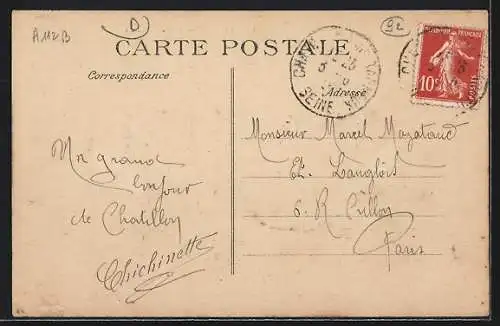 A112B
D
92
CARTE POSTALE
Correspondance
Adresse
SEINE
RÉPUBLIQUE FRANÇAISE
10c
POSTES
Un grand
bonjour
de Chatillon
Chichinette
Monsieur Marcel Mazataud
Et. Langlois
6. R
Paris